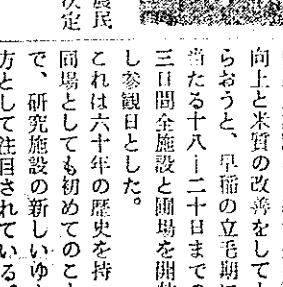 農民
決定
向上と米質の改善をして
らおうと、早稲の立毛期
当たる十八―二十日までの
三日間全施設と圃場を開
し参観日とした。
これは六十年の歴史を持
同場としても初めてのこ
で、研究施設の新しいゆ
方として注目されている